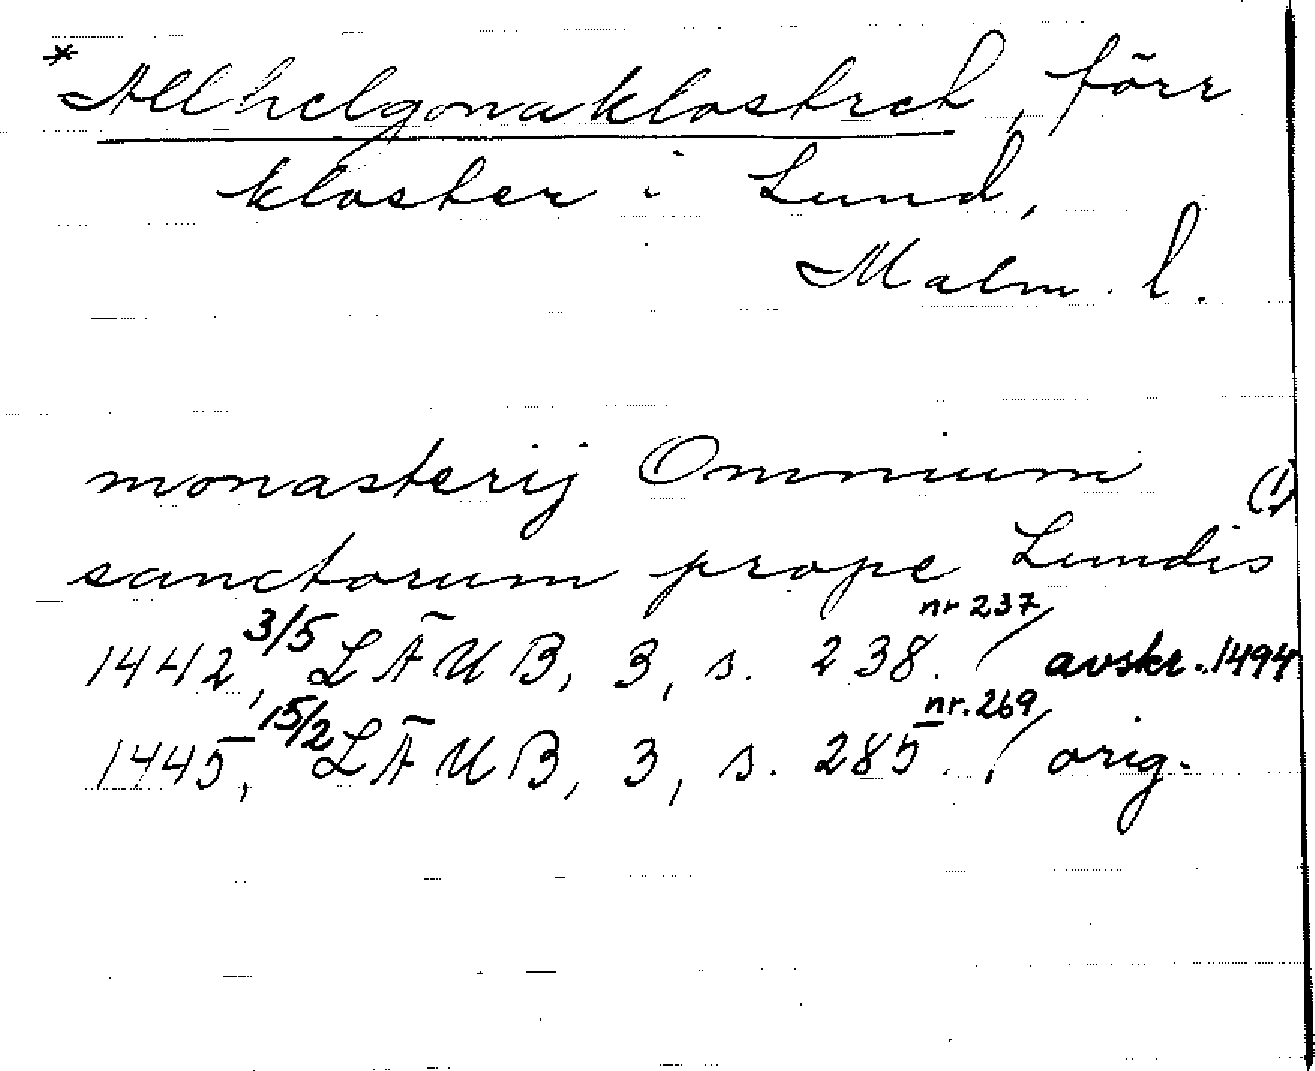 * Allhelgonaklostret, förr
kloster i Lund,
Malm. l.
monasterij Omnium
sanctorum prope Lundis (!)
1442, 3/5 LÄUB, 3, s. 238. nr 237 / avskr. 1494
1445, 15/2 LÄUB, 3, s. 285. nr. 269 / orig.